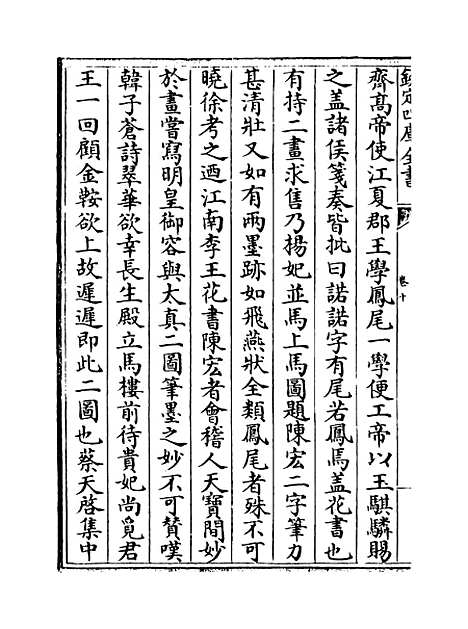 欽定四庫全書
卷十
齊高帝使江夏郡王學鳳尾一學便工帝以玉騏驎賜
之蓋諸侯箋奏皆批曰諾諾字有尾若鳳焉蓋花書也
有持二畫求售乃楊妃並馬上馬圖題陳宏二字筆力
甚清壯又如有兩墨跡如飛燕狀全類鳳尾者殊不可
曉徐考之迺江南李王花書陳宏者會稽人天寶間妙
於畫嘗寫明皇御容與太真二圖筆墨之妙不可賛嘆
韓子蒼詩翠華欲幸長生殿立馬樓前待貴妃尚覓君
王一回顧金鞍欲上故遲遲即此二圖也蔡天啓集中